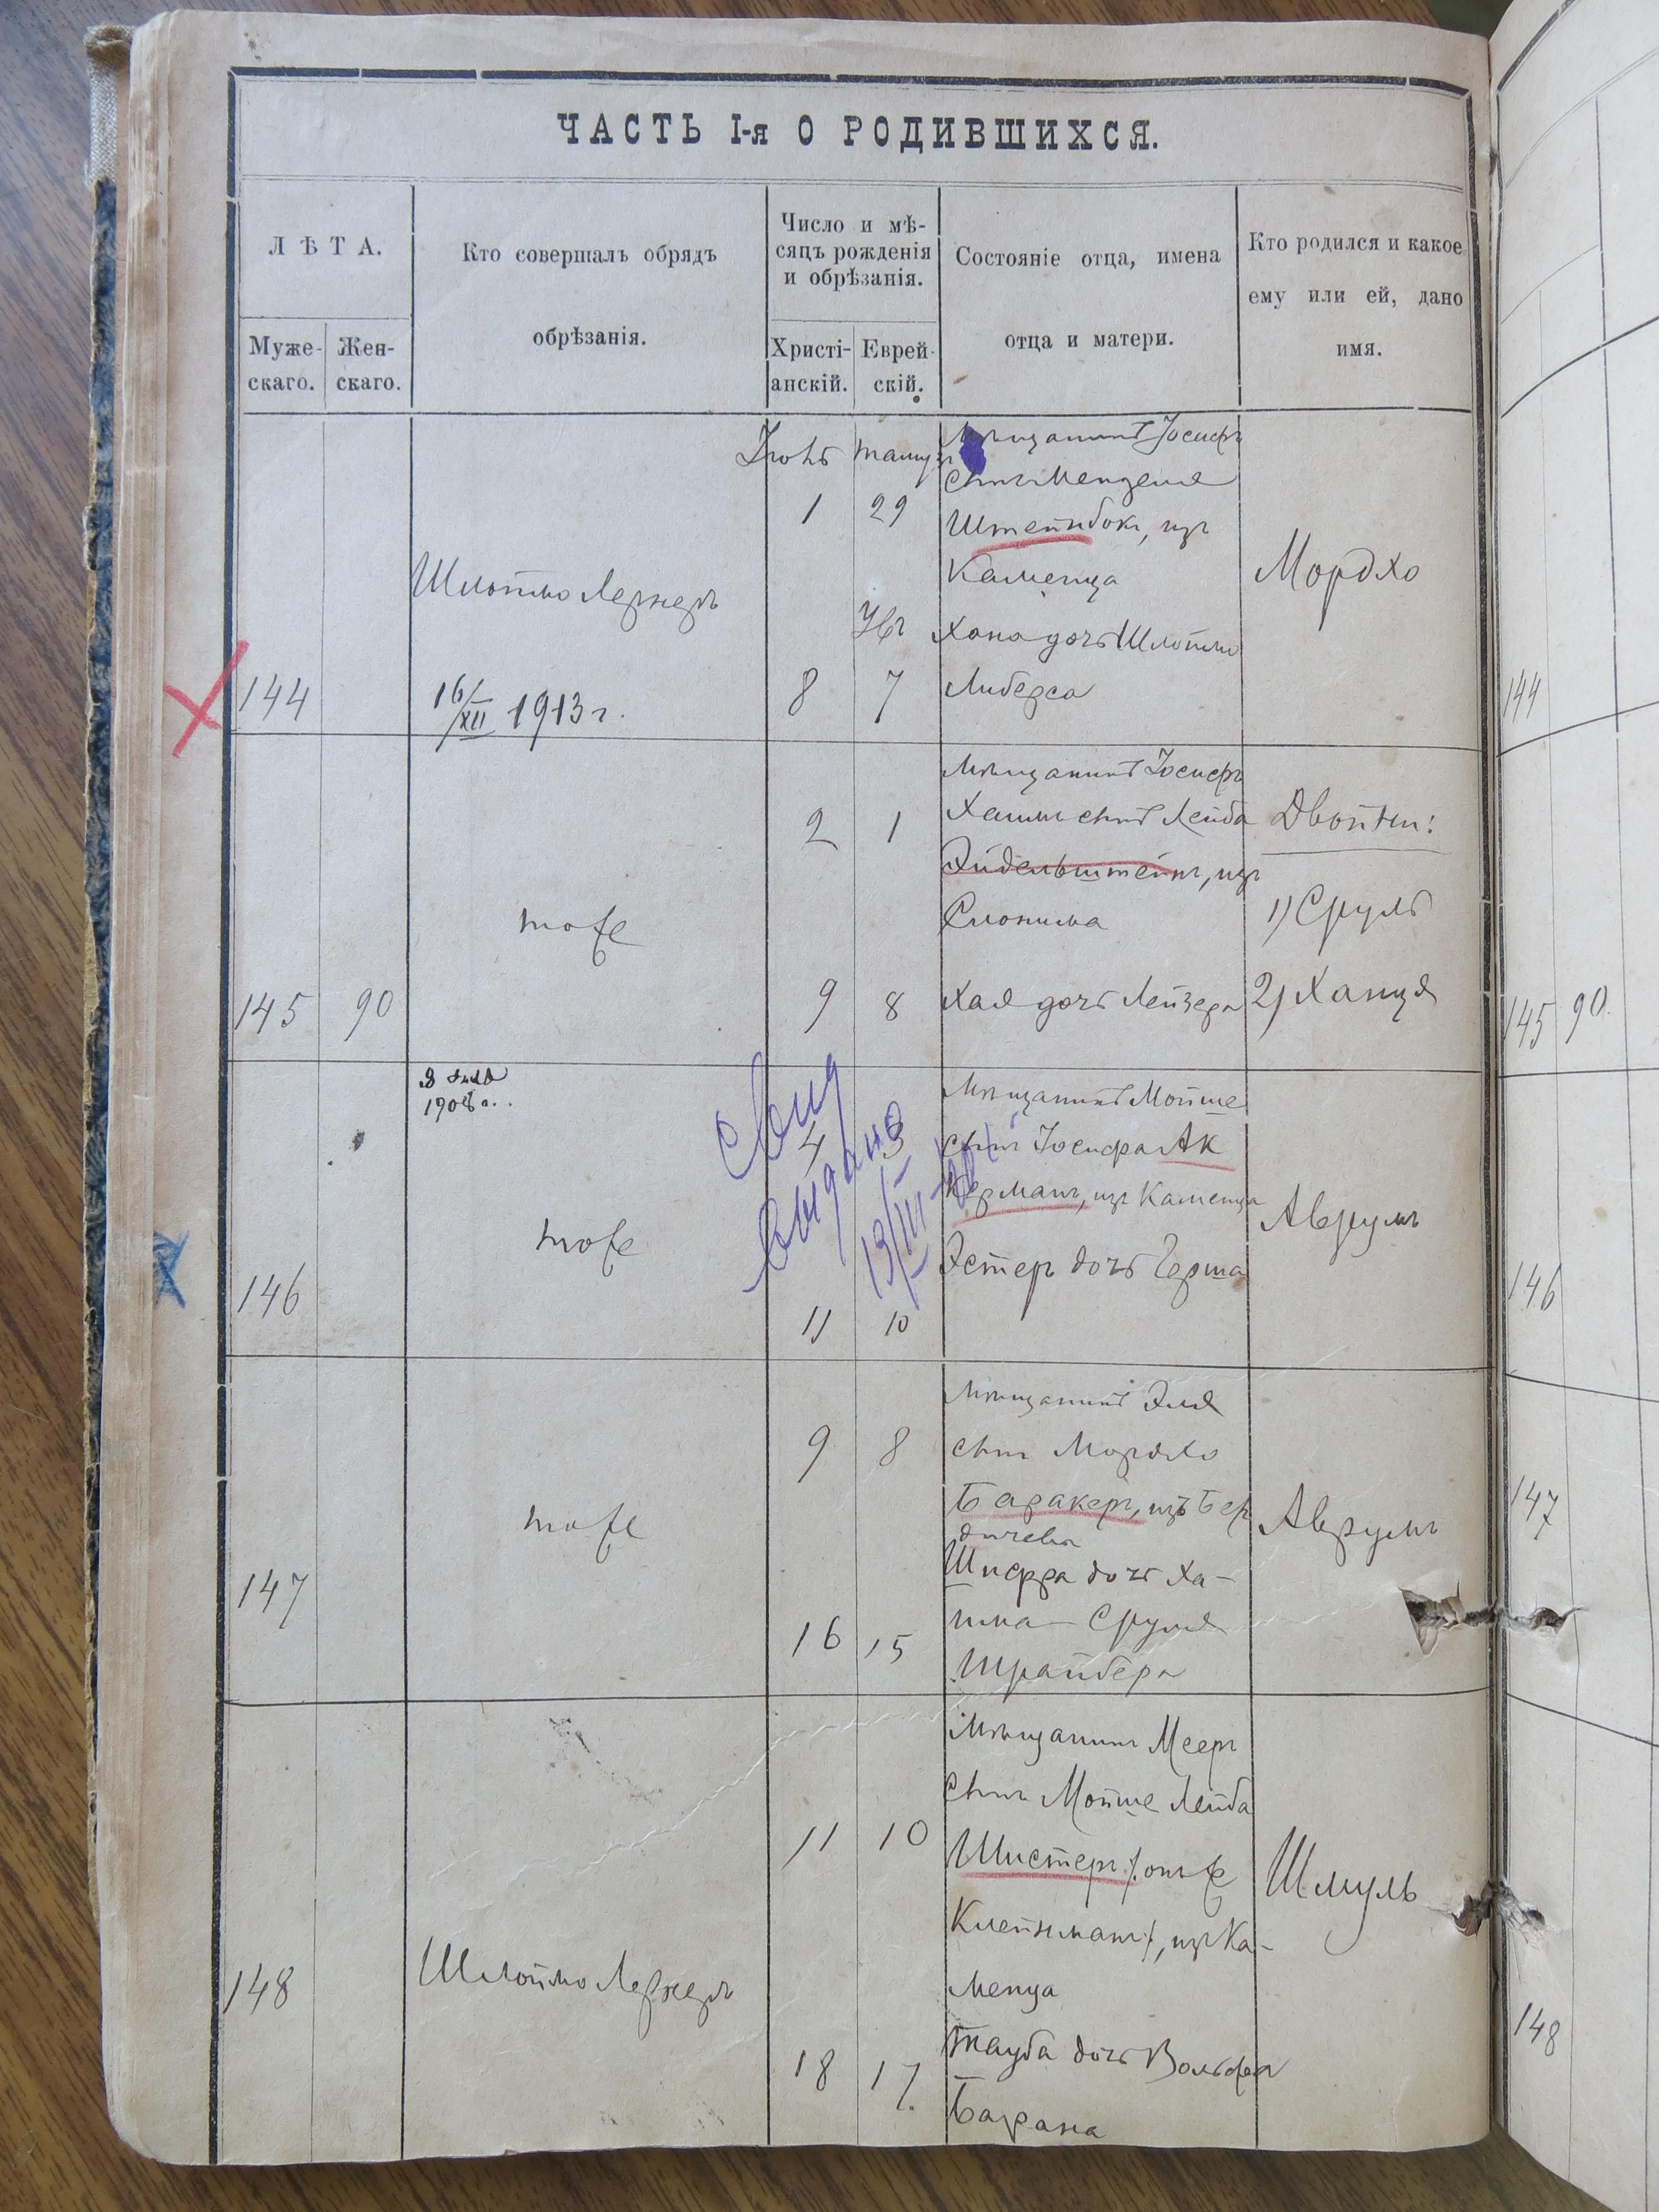 ЧАСТЬ I-я О РОДИВШИХСЯ.
ЛѢТА.
Муже-
скаго.
Жен-
скаго.
Кто совершалъ обрядъ
обрѣзанія.
Число и мѣ-
сяцъ рожденія
и обрѣзанія.
Христі-
анскій.
Еврей-
скій.
Состояніе отца, имена
отца и матери.
Кто родился и какое
ему или ей, дано
имя.
144
Шлоймо Лернеръ
16/XII 1913 г.
Іюль
1
8
тамуз
29
Явъ
7
Мѣщанинъ Іосифъ
сынъ Менделя
Штейнбокъ, изъ
Каменца
Хана дочь Шлоймы
Либерса
Мордхо
144
145
90
тоже
2
9
1
8
Мѣщанинъ Іосифъ
Хаим сынъ Лейба
Эйдельштейнъ, изъ
Слонима
Хая дочь Лейзера
Двойни:
1) Сруль
2) Ханця
145 90.
146
тоже
4
11
3
10
Свид
выдано
13/III
Мѣщанинъ Мойше
сынъ Іосифа Ак
керманъ, изъ Каменца
Эстеръ дочь Герша
Аврумъ
146
147
тоже
9
16
8
15
Мѣщанинъ Эля
сынъ Мордхо
Баракеръ, изъ Бер
дичева
Шифра дочь Ха-
има Сруля
Шрайбера
Аврумъ
147
148
Шлоймо Лернеръ
11
18
10
17.
Мѣщанинъ Мееръ
сынъ Мойше Лейба
Шистеръ /: онъ же
Клейнманъ :/, изъ Ка-
менца
Тауба дочь Вольфа
Барана
Шмуль
148